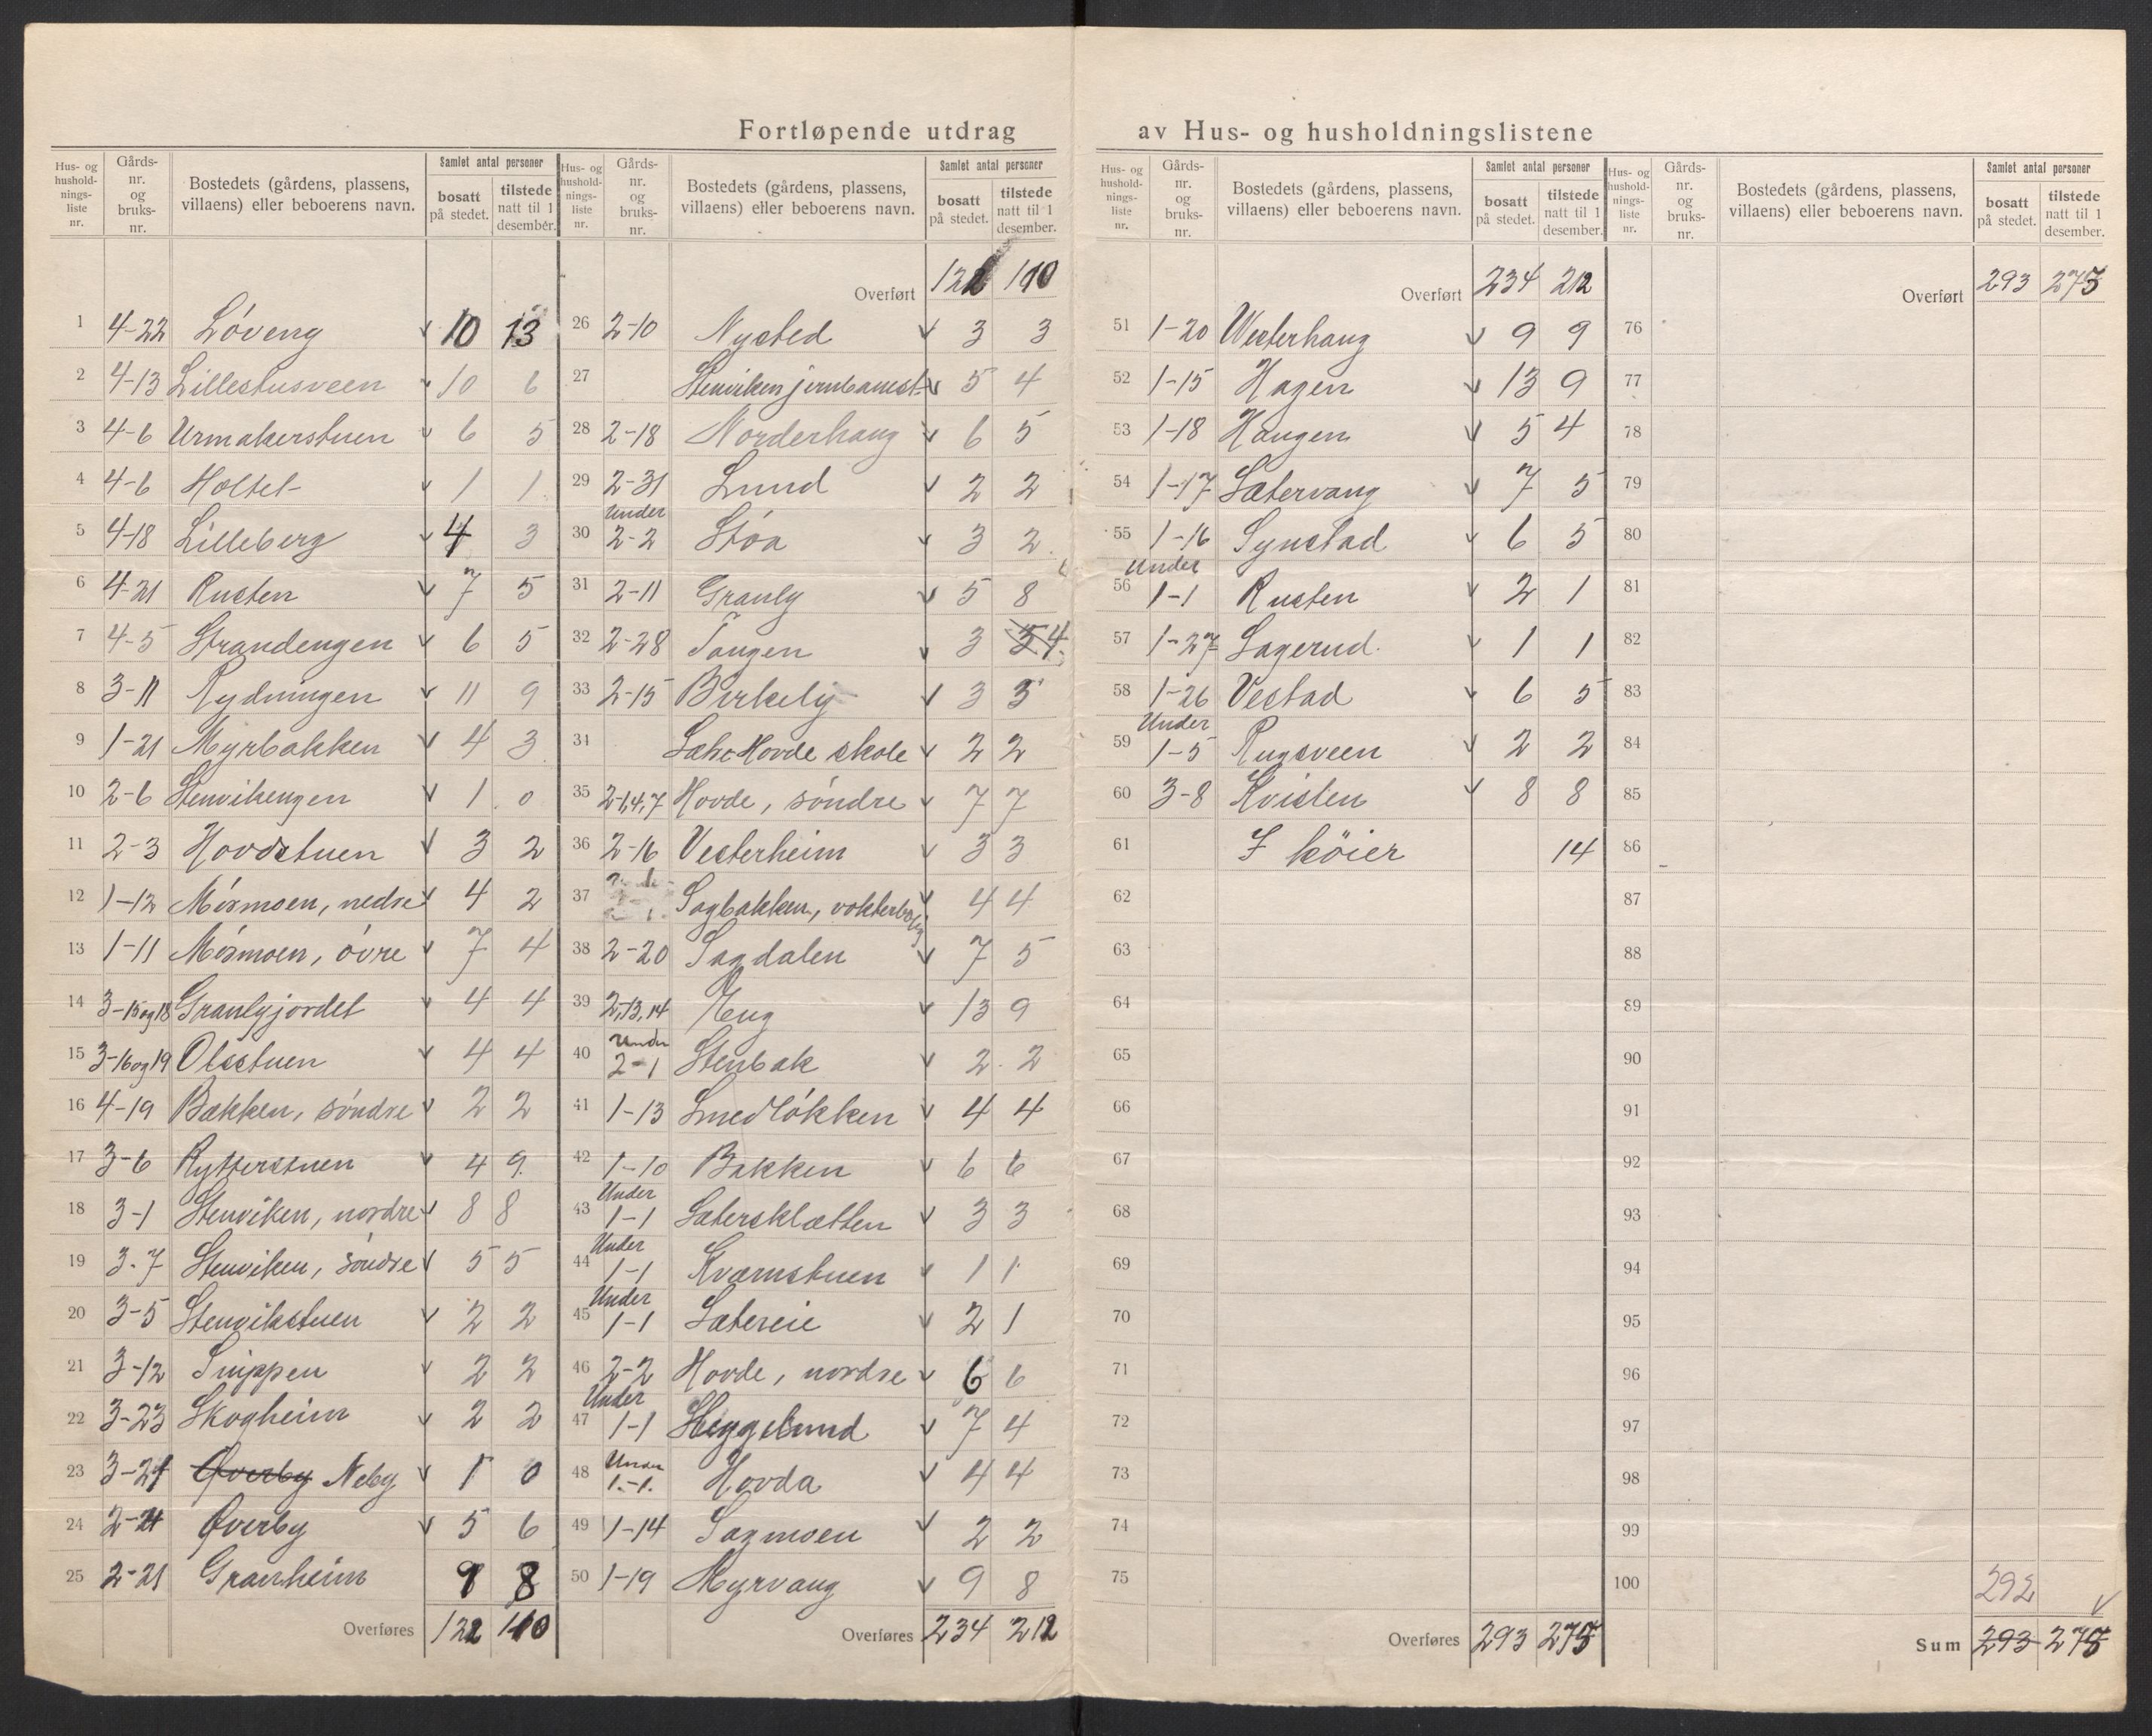 Fortløpende utdrag av Hus- og husholdningslistene
Hus- og husholdnings- liste nr. | Gårds- nr. og bruks- nr. | Bostedets (gårdens, plassens, villaens) eller beboerens navn. | Samlet antal personer bosatt på stedet. | tilstede natt til 1 desember.
1 4-22 Løveng v 10 13
2 4-13 Lillestusveen v 10 6
3 4-6 Urmakerstuen v 6 5
4 4-6 Holtet v 1 1
5 4-18 Lilleberg v 4 3
6 4-21 Rusten v 7 5
7 4-5 Strandengen v 6 5
8 3-11 Rydningen v 11 9
9 1-21 Myrbakken v 4 3
10 2-6 Stenvikengen v 1 0
11 2-3 Hovdstuen v 3 2
12 1-12 Mösmoen, nedre v 4 2
13 1-11 Mösmoen, övre v 7 4
14 3-15og18 Granlyjordet v 4 4
15 3-16og19 Olsstuen v 4 4
16 4-19 Bakken, söndre v 2 2
17 3-6 Rytterstuen v 4 9
18 3-1 Stenviken, nordre v 8 8
19 3-7 Stenviken, söndre v 5 5
20 3-5 Stenvikstuen v 2 2
21 3-12 Snippen v 2 2
22 3-23 Skogheim v 2 2
23 3-24 Øverby Neby v 1 0
24 2-24 Øverby v 5 6
25 2-21 Granheim 9 8
Overføres 122 110
Hus- og husholdnings- liste nr. | Gårds- nr. og bruks- nr. | Bostedets (gårdens, plassens, villaens) eller beboerens navn. | Samlet antal personer bosatt på stedet. | tilstede natt til 1 desember.
Overført 122 110
26 2-10 Nysted v 3 3
27 Stenviken jernbanest. v 5 4
28 2-18 Norderhaug v 6 5
29 2-31 Lund v 2 2
30 Under 2-2 Stöa v 3 2
31 2-11 Granly v 5 8
32 2-28 Tangen v 3 4
33 2-15 Birkely v 3 3
34 Hovde skole v 2 2
35 2-1,4,7 Hovde, söndre v 7 7
36 2-16 Vesterheim v 3 3
37 Sagbakken, vokterbolig v 4 4
38 2-20 Sagdalen v 7 5
39 2,13,14 Eng v 13 9
40 Under 2-1 Stenbak v 2 2
41 1-13 Smedlökken v 4 4
42 1-10 Bakken v 6 6
43 Under 1-1 Sætersklætten v 3 3
44 Under 1-1 Kvernstuen v 1 1
45 Under 1-1 Sætereie v 2 1
46 2-2 Hovde, nordre v 6 6
47 Under 1-1 Heggelund v 7 4
48 Under 1-1. Hovda v 4 4
49 1-14 Sagmoen v 2 2
50 1-19 Myrvang v 9 8
Overføres 234 212
Hus- og husholdnings- liste nr. | Gårds- nr. og bruks- nr. | Bostedets (gårdens, plassens, villaens) eller beboerens navn. | Samlet antal personer bosatt på stedet. | tilstede natt til 1 desember.
Overført 234 212
51 1-20 Westerhaug v 9 9
52 1-15 Hagen v 13 9
53 1-18 Haugen v 5 4
54 1-17 Sætervang v 7 5
55 1-16 Synstad v 6 5
56 Under 1-1 Rusten v 2 1
57 1-27 Lagerud. v 1 1
58 1-26 Vestad v 6 5
59 Under 1-5 Rugsveen v 2 2
60 3-8 Kvisten v 8 8
61 I köier 14
62
63
64
65
66
67
68
69
70
71
72
73
74
75
Overføres 293 275
Hus- og husholdnings- liste nr. | Gårds- nr. og bruks- nr. | Bostedets (gårdens, plassens, villaens) eller beboerens navn. | Samlet antal personer bosatt på stedet. | tilstede natt til 1 desember.
Overført 293 275
76
77
78
79
80
81
82
83
84
85
86
87
88
89
90
91
92
93
94
95
96
97
98
99
100
292 v
Sum 293 275